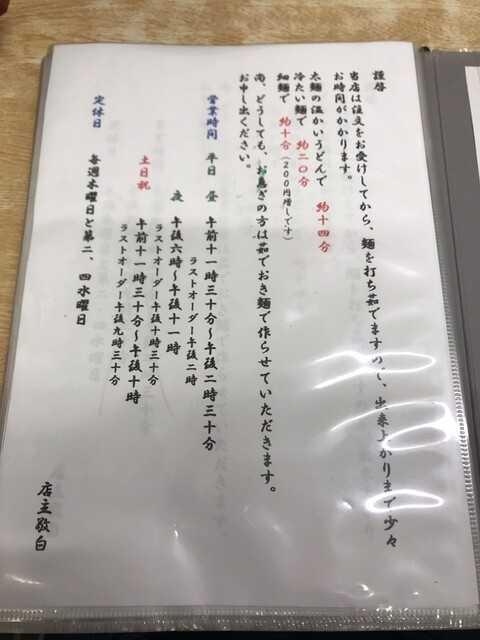 謹啓
当店は注文をお受けしてから、麺を打ち茹でますので、出来上がりまで少々
お時間がかかります。
太麺の温かいうどんで　約十四分
冷たい麺で　約二〇分
細麺で　約十分（200円増しです）
尚、どうしても、お急ぎの方は茹でおき麺で作らせていただきます。
お申し出ください。
営業時間　平日　昼　午前十一時三十分～午後二時三十分
ラストオーダー午後二時
夜　午後六時～午後十一時
ラストオーダー午後十時三十分
土日祝　午前十一時三十分～午後十時
ラストオーダー午後九時三十分
定休日　毎週木曜日と第二、四水曜日
店主敬白